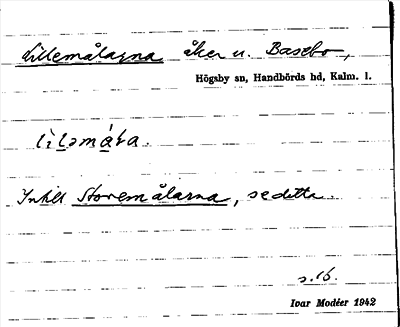 Lillemålarna åker u. Basebo,
Högsby sn, Handbörds hd, Kalm. l.
lìləmá̱ɩa.
Intill Storemålarna, se detta.
s.16.
Ivar Modéer 1942